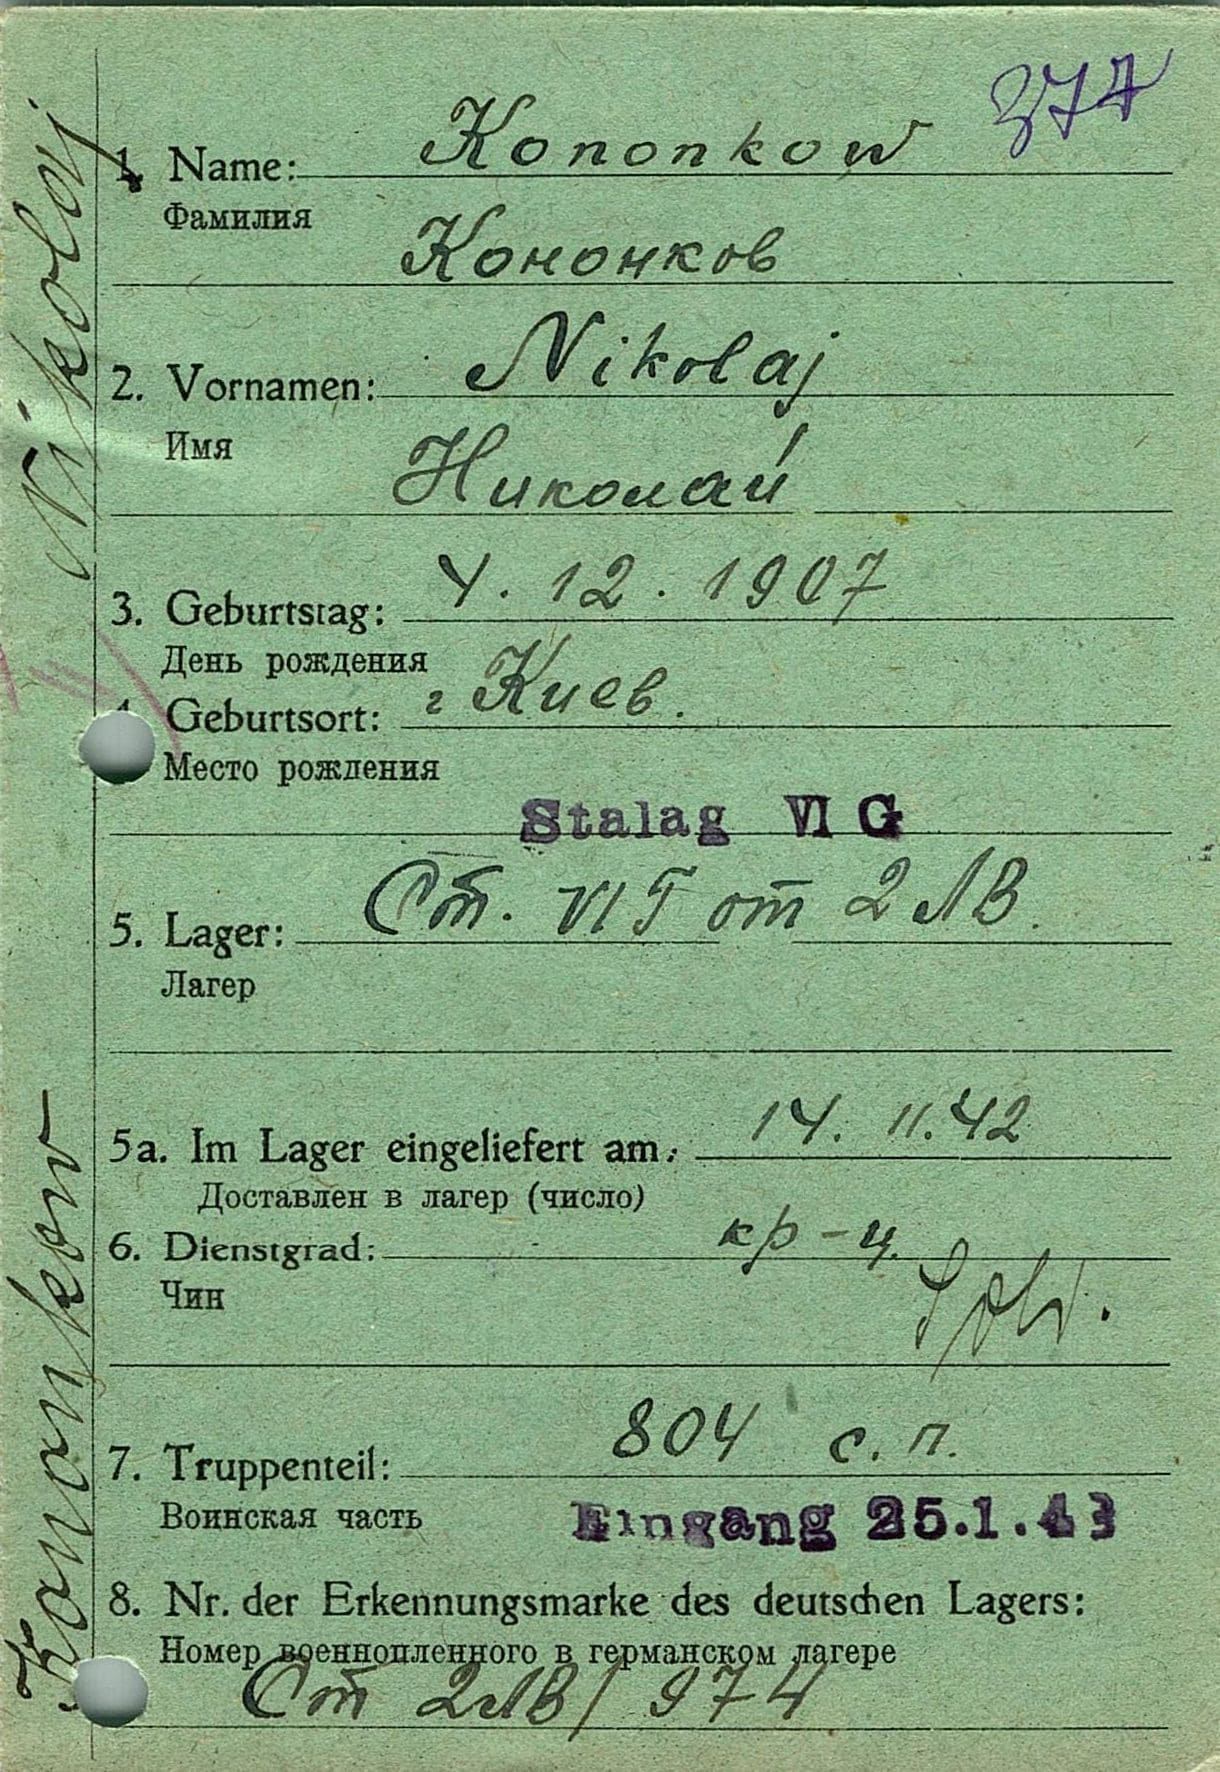 377
1. Name: Kononkow
Фамилия
Кононков
2. Vornamen: Nikolaj
Имя
Николай
3. Geburtstag: 4. 12. 1907
День рождения
4. Geburtsort: г Киев.
Место рождения
Stalag VI G
5. Lager: Ст. VI Г от 2 ЛВ.
Лагер
5a. Im Lager eingeliefert am: 14. 11. 42
Доставлен в лагер (число)
6. Dienstgrad: кр-ц.
Чин
Sold.
7. Truppenteil: 804 с. п.
Воинская часть
Eingang 25.1.43
8. Nr. der Erkennungsmarke des deutschen Lagers:
Номер военнопленного в германском лагере
Ст 2 ЛВ/ 974
Kononkow Nikolaj